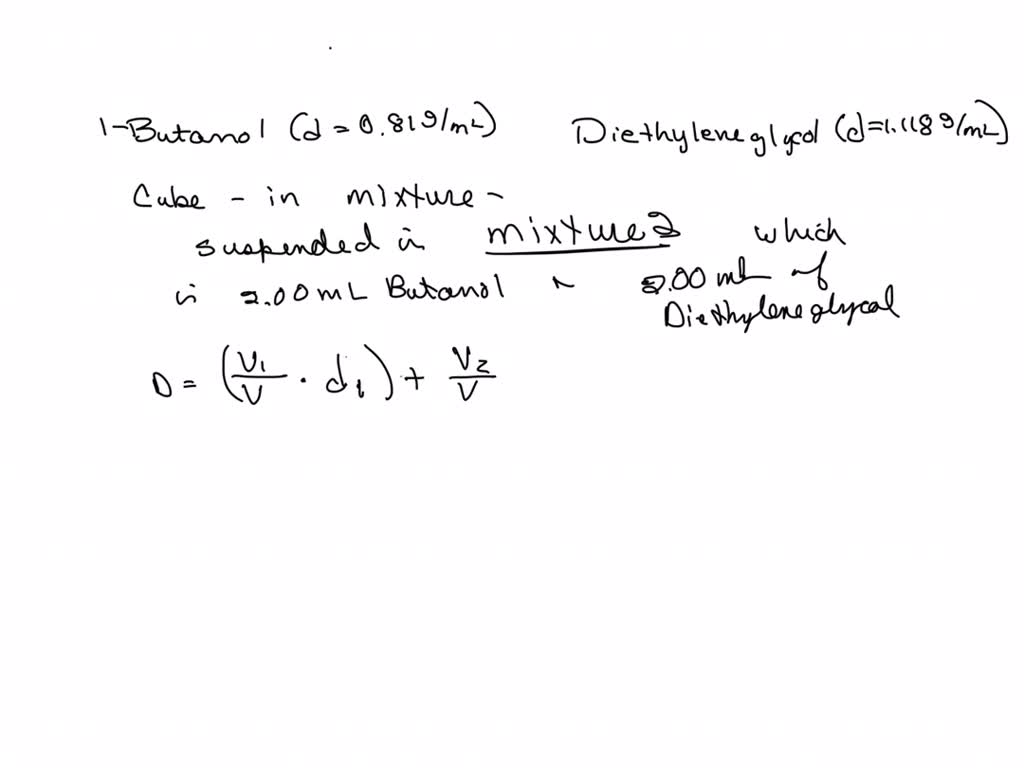 1-Butanol (d = 0.81 g/mL) Diethylene glycol (d=1.118 g/mL)
Cube - in mixture -
suspended in mixture 2 which
is 2.00 mL Butanol of
.00 mL
Diethylene glycol
D = (V1/V · d1) + V2/V